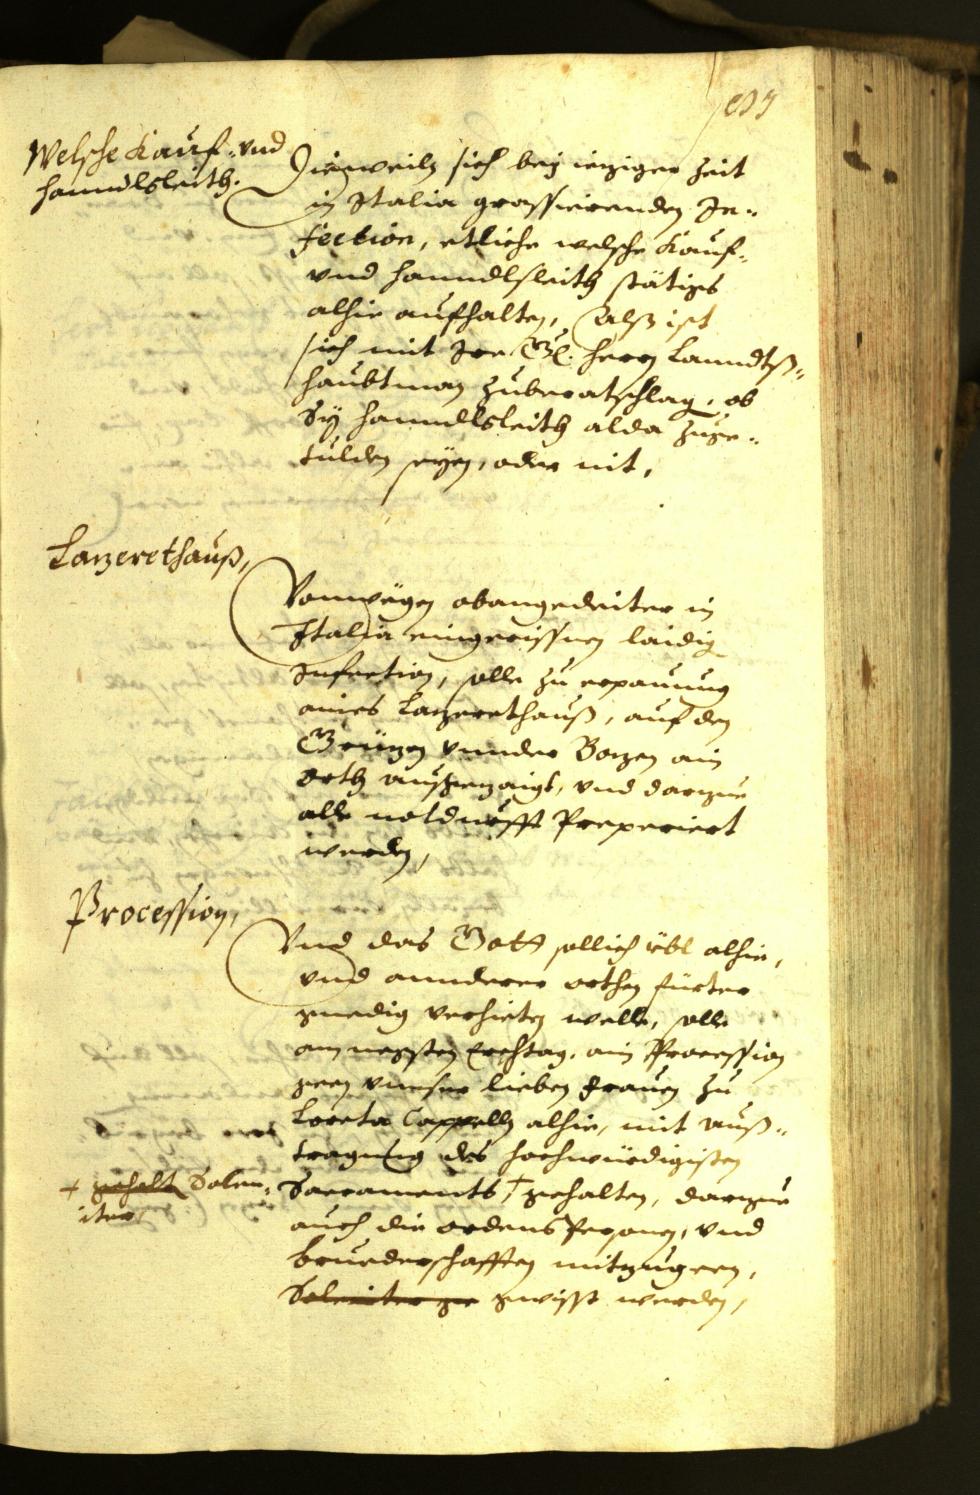 Welsche Kauf- und
hanndlsleith.
Dieweiln sich bey ieziger Zeit
in Italia grassierenden In-
fection, etliche welsche Kauf-
und hanndlsleith stätigs
alhie aufhalten, Alß ist
sich mit Ire Gl. herrn Lanndtß-
haubtman zuberatschlag, ob
Sy hanndlsleith alda zuge-
tulden seyen, oder nit,
Lazerethauß,
Vonwegen obangedeiter in
Italia eingerissnen laidig
Infection, solle zu erpauung
aines Lazerethauß, auf den
Grüzen vnnder Bozen ain
orth außgezaigt, vnd darzue
alle notdurfft Preperiert
werden,
Procession,
Vnd das Gott sollich übl alhie,
vnd annderer orthen fürter
genedig verhieten welle, solle
am negsten Erchtag, ain Procession
geen vnnser lieben Frauen zu
Loreta Cappelln alhie, mit auß-
tragung des hochwürdigisten
Sacraments, + gehalten, darzue
+ gehalt Solen-
iter
auch die ordens Persohnen, vnd
bruederschafften mitzugeen,
Soleniter ge gwisst werden,